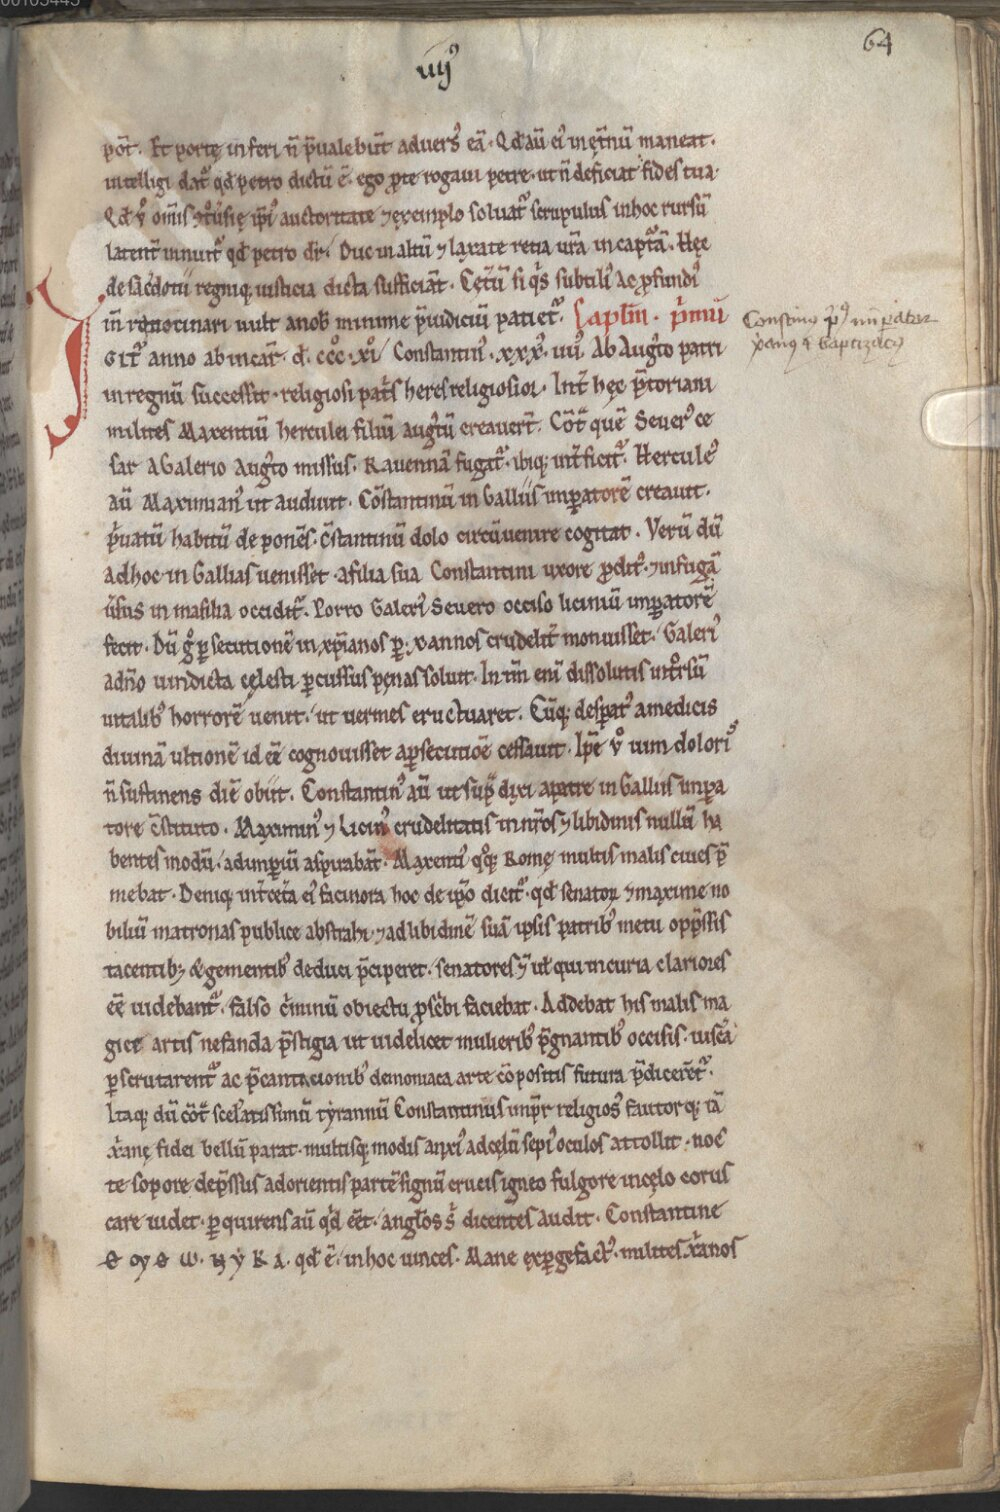 64
iiij⁹
pot̄. Et portę inferi n̄ p̄ualebūt aduersꝰ eā. Qd̄ aū eiꝰ in ęt̄nū maneat.
intelligi dat᷑ qd̄ petro dictū ē. ego ꝓ te rogaui petre. ut n̄ deficiat fides tua.
latent̄ innuit᷑ qd̄ petro dr̄. Duc in altū ⁊ laxate retia ur̄a in captᷓā. Hęc
de sac̄dotii regniq; iusticia dicta sufficiāt. Cęt̄ū si qͥs subtiliꝰ ac ꝓfundiꝰ
in rationari uult a nob̄ minime p̄iudiciū patiet᷑. Cap̄lm̄. p̄mū
Constantinꝰ pͥmꝰ imperator
xp̄ianꝰ ⁊ baptizatꝰ
IGIT᷑ anno ab incar̄. d̄. ccc̊. xi̊. Constantinꝰ. xxxꝰ. iiiꝰ. Ab Augᵗo patri
in regnū successit. religiosi patͥs heres religiosior. Int̄ hęc p̄toriani
milites Maxentiū herculei filiū augᵗū creauer̄t. Cōtͣ quē Seuerꝰ ce
sar a Galerio Augᵗo missus. Rauennā fugat᷑. ibiq; int̄ficit᷑. Herculeꝰ
aū Maximianꝰ ut audiuit. Cōstantinū in Galliis imꝑatorē creauit.
pͥuatū habitū deponēs. c̄stantinū dolo circūuenire cogitat. Verū dū
ad hoc in Gallias uenisset. a filia sua Constantini uxore ꝓditꝰ. ⁊ in fugā
ūsus in masilia occidit᷑. Porro Galeriꝰ Seuero occiso liciniū imꝑatorē
fecit. Dū gͦ ꝑsecutionē in xp̄ianos ꝑ. x. annos crudelit̄ mouisset. Galeriꝰ
a dn̄o uindicta cęlesti ꝑcussus pęnas soluit. In tm̄ enī dissolutis intͦrsū
uitalibꝰ horrorē uenit. ut uermes eructuaret. Cūq; desꝑatꝰ a medicis
diuinā ultionē id eē cognouisset a ꝑsecutiōe cessauit. Ip̄e ūͦ uim doloris
n̄ sustinens diē obiit. Constantinꝰ aū ut supͣ dixi a patre in Galliis imꝑa
tore c̄stituto. Maximinꝰ ⁊ Liciniꝰ crudelitatis in nr̄os ⁊ libidinis nullū ha
bentes modū. ad imꝑiū aspirabāt. Maxentiꝰ qͦq; Romę multis malis ciues p̄
mebat. Deniq; int̄ cet̄a eiꝰ facinora hoc de ip̄o dicit᷑. qd̄ senatoꝝ ⁊ maxime no
biliū matronas publice abstrahi. ⁊ ad libidinē suā ipsis patribꝰ metu opp̄ssis
tacentibꝫ & gementibꝰ deduci p̄ciperet. senatores ⁊ ul̄ qui in curia clariores
eē uidebant᷑. falso cͥminū obiectu ꝓscͥbi faciebat. Addebat his malis ma
gicę artis nefanda p̄stigia ut uidelicet mulieribꝰ p̄gnantibꝰ occisis. uisc̄a
ꝑscrutarent᷑ ac p̄cantacionibꝰ demoniaca arte cōpositis futura p̄dicerēt᷑.
Itaq; dū cōtͣ scel̄atissimū tẏrannū Constantinus imꝑr̄ religiosꝰ fautorq; iā
xͥanę fidei bellū parat. multisq; modis anxiꝰ ad cęlū sepiꝰ oculos attollit. noc
te sopore dep̄ssus ad orientis partē signū crucis igneo fulgore in cęlo corus
care uidet. ꝑquirens aū qͥd eēt. angl̄os sͥ dicentes audit. Constantine
qd̄ ē. in hoc uinces. Mane exꝑgefactꝰ. milites xͥanos